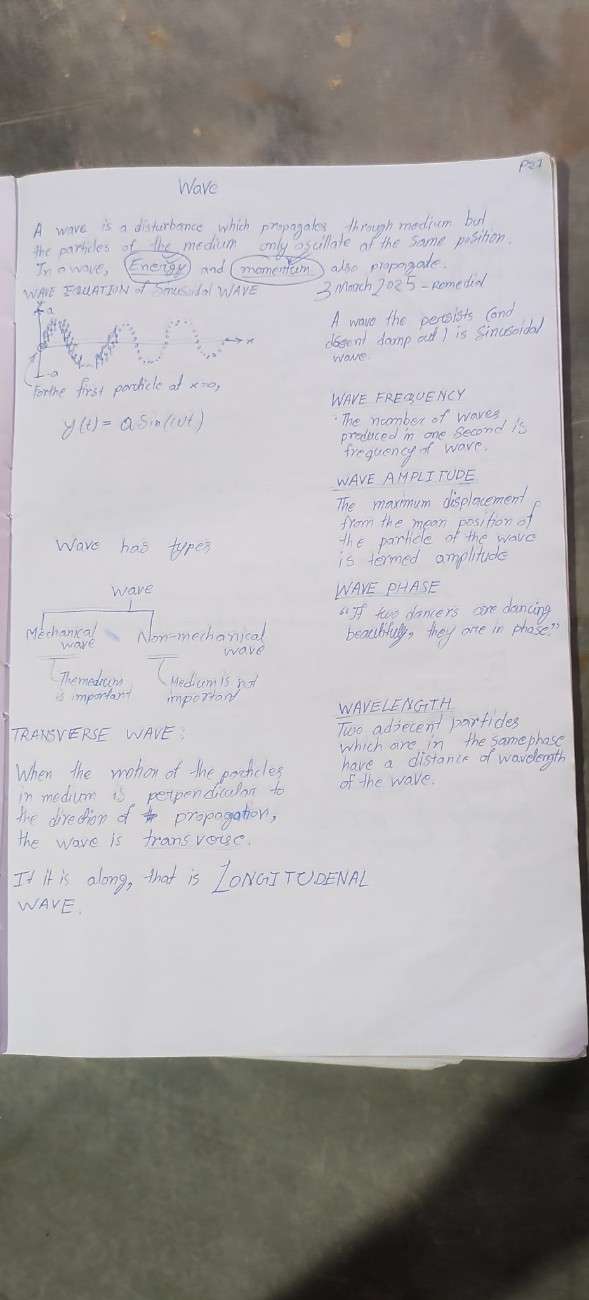 P27
Wave
A wave is a disturbance which propagates through medium but
the particles of the medium only oscillate at the same position.
In a wave, Energy and momentum also propagate.
WAVE EQUATION of Sinusoidal WAVE
a
x
-a
For the first particle at x=0,
y(t) = a Sin(wt)
Wave has types
wave
Mechanical
wave
Non-mechanical
wave
The medium
is important
Medium is not
important
TRANSVERSE WAVE:
When the motion of the particles
in medium is perpendicular to
the direction of propagation,
the wave is transverse.
If it is along, that is LONGITUDENAL
WAVE.
3 March 2025 - Remedial
A wave the persists (and
doesnt damp out) is Sinusoidal
wave.
WAVE FREQUENCY
The number of waves
produced in one second is
frequency of wave.
WAVE AMPLITUDE
The maximum displacement
from the mean position of
the particle of the wave
is termed amplitude
WAVE PHASE
"If two dancers are dancing
beautifully, they are in phase."
WAVELENGTH
Two adjecent particles
which are in the same phase
have a distance of wavelength
of the wave.